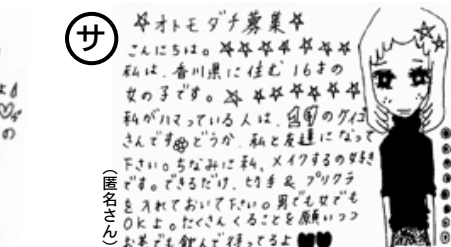 サ
☆オトモダチ募集☆
こんにちは。☆☆☆☆☆☆☆
私は、香川県に住む16才の
女の子です。☆☆☆☆☆☆☆
私がハマっている人は、のケイゴ
さんです どうか、私と友達になって
下さい。ちなみに私、メイクするの好き
です。できるだけ、切手&プリクラ
を入れておいて下さい。男でも女でも
OKよ。たくさんくることを願いつつ
お茶でも飲んで待ってるよ♥♥
(匿名さん)
の